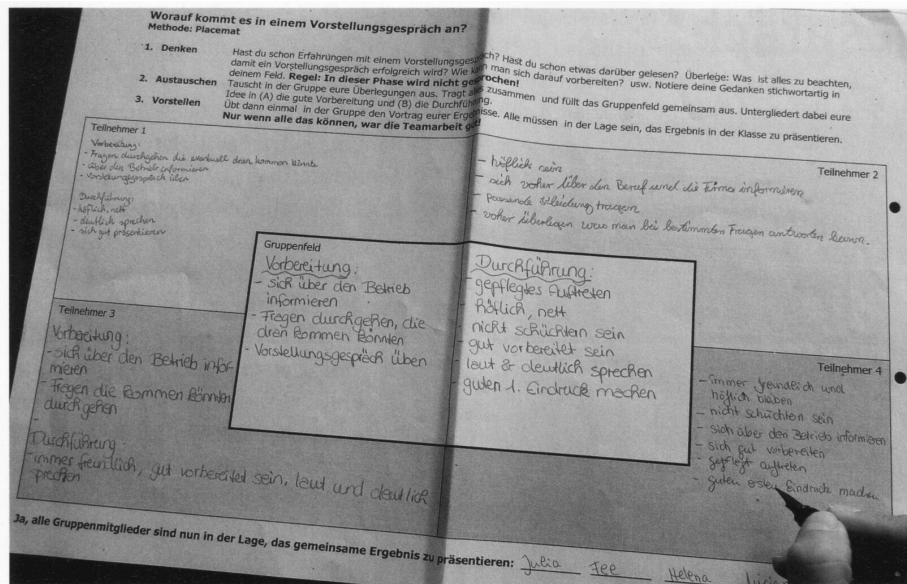 Worauf kommt es in einem Vorstellungsgespräch an?
Methode: Placemat
1. Denken Hast du schon Erfahrungen mit einem Vorstellungsgespräch? Hast du schon etwas darüber gelesen? Überlege: Was ist alles zu beachten,
damit ein Vorstellungsgespräch erfolgreich wird? Wie kann man sich darauf vorbereiten? usw. Notiere deine Gedanken stichwortartig in
deinem Feld. Regel: In dieser Phase wird nicht gesprochen!
2. Austauschen Tauscht in der Gruppe eure Überlegungen aus. Tragt alles zusammen und füllt das Gruppenfeld gemeinsam aus. Untergliedert dabei eure
Idee in (A) die gute Vorbereitung und (B) die Durchführung.
3. Vorstellen Übt dann einmal in der Gruppe den Vortrag eurer Ergebnisse. Alle müssen in der Lage sein, das Ergebnis in der Klasse zu präsentieren.
Nur wenn alle das können, war die Teamarbeit gut!
Teilnehmer 1
Vorbereitung:
- Fragen durchgehen die eventuell dran kommen könnte
- über den Betrieb informieren
- Vorstellungsgespräch üben
Durchführung:
- höflich, nett
- deutlich sprechen
- sich gut präsentieren
Teilnehmer 2
- höflich sein
- sich vorher über den Beruf und die Firma informieren
- passende Kleidung tragen
- vorher überlegen was man bei bestimmten Fragen antworten kann.
Gruppenfeld
Vorbereitung:
- sich über den Betrieb
informieren
- Fragen durchgehen, die
dran kommen könnten
- Vorstellungsgespräch üben
Durchführung:
- gepflegtes Auftreten
- höflich, nett
- nicht schüchtern sein
- gut vorbereitet sein
- laut & deutlich sprechen
- guten 1. Eindruck machen
Teilnehmer 3
Vorbereitung:
- sich über den Betrieb infor-
mieren
- Fragen die kommen könnten
durchgehen
-
Durchführung:
- immer freundlich, gut vorbereitet sein, laut und deutlich
sprechen
Teilnehmer 4
- immer freundlich und
höflich bleiben
- nicht schüchtern sein
- sich über den Betrieb informieren
- sich gut vorbereiten
- gepflegt auftreten
- guten ersten Eindruck machen
Ja, alle Gruppenmitglieder sind nun in der Lage, das gemeinsame Ergebnis zu präsentieren: Julia Fee Helena